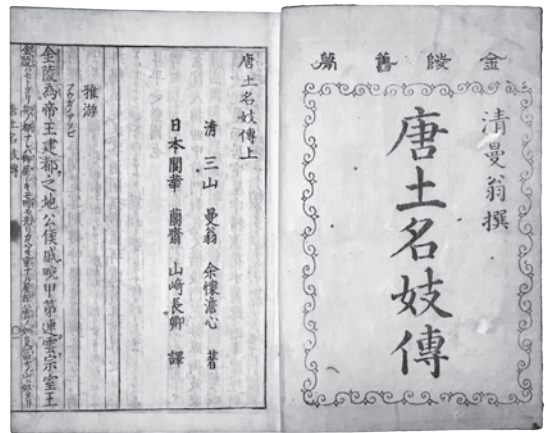 金陵舊夢
清曼翁撰
唐土名妓傳
唐土名妓傳上
清 三山 曼翁 余懷澹心 著
日本 閬華 蘭齋 山﨑長卿 譯
雅游
フウガアソビ
金陵為帝王建都之地公侯戚畹甲第連雲宗室王